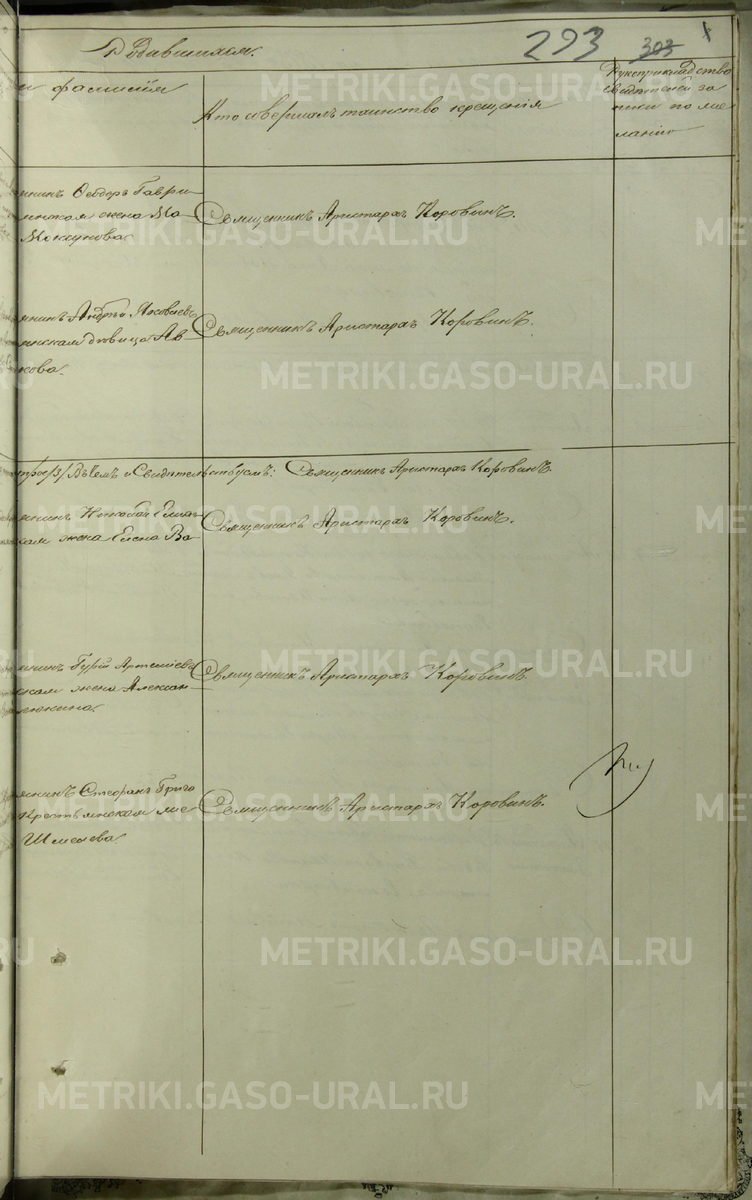 родившихся.
293
303
и фамилія
Кто совершалъ таинство крещенія
Рукоприкладство
свидѣтелей за
писи по же
ланію
янинъ Ѳеодоръ Гаври
жена Ма
Священникъ Аристархъ Коровинъ.
янинъ Андрей Яковлевъ
янская дѣвица Ав
кова.
Священникъ Аристархъ Коровинъ.
/3/ въ чемъ и свидѣтельствуемъ: Священникъ Аристархъ Коровинъ
янинъ
кая жена Елена Ва
Священникъ Аристархъ Коровинъ.
янинъ Гурій Артеміевъ
ская жена Алексан
Священникъ Аристархъ Коровинъ
янинъ Стефанъ Григо
Крестьянская
Шмелева.
Священникъ Аристархъ Коровинъ.
METRIKI.GASO-URAL.RU